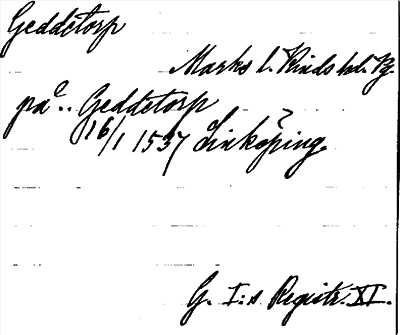 Geddetorp
Marks l. Kinds hd. Vg.
på.. Geddetorp
16/1 1537 Linköping
G. I:s Registr. XI.